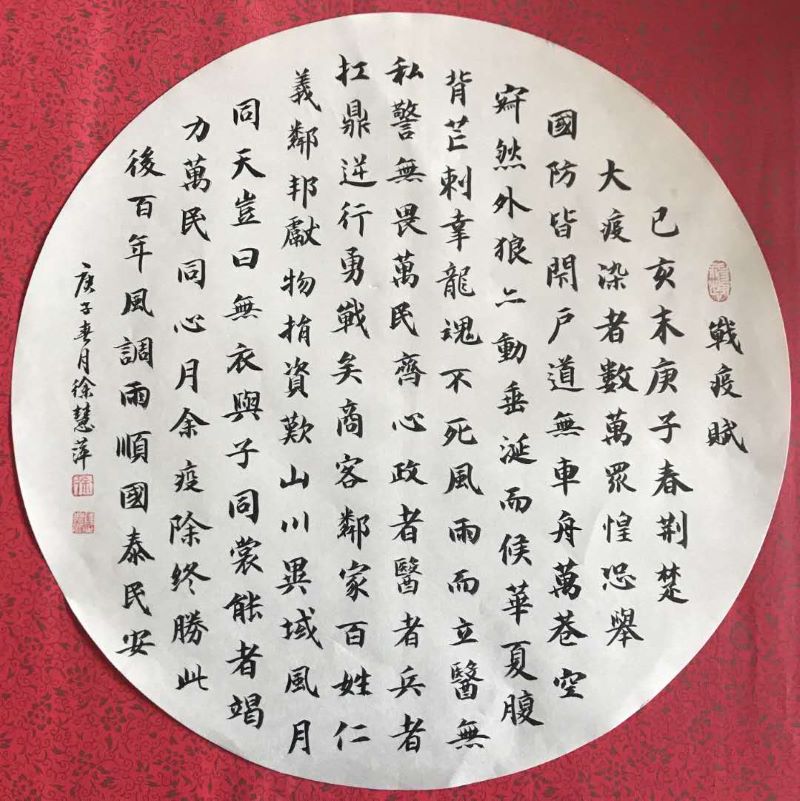 戰疫賦
己亥末庚子春荆楚
大疫染者數萬眾惶恐舉
國防皆閉戶道無車舟萬巷空
寂然外狼亦動垂涎而候華夏腹
背芒刺幸龍魂不死風雨而立醫無
私警無畏萬民齊心政者醫者兵者
扛鼎逆行勇戰矣商客鄰家百姓仁
義鄰邦獻物捐資歎山川異域風月
同天豈曰無衣與子同裳能者竭
力萬民同心月余疫除終勝此
後百年風調雨順國泰民安
庚子春月徐慧萍